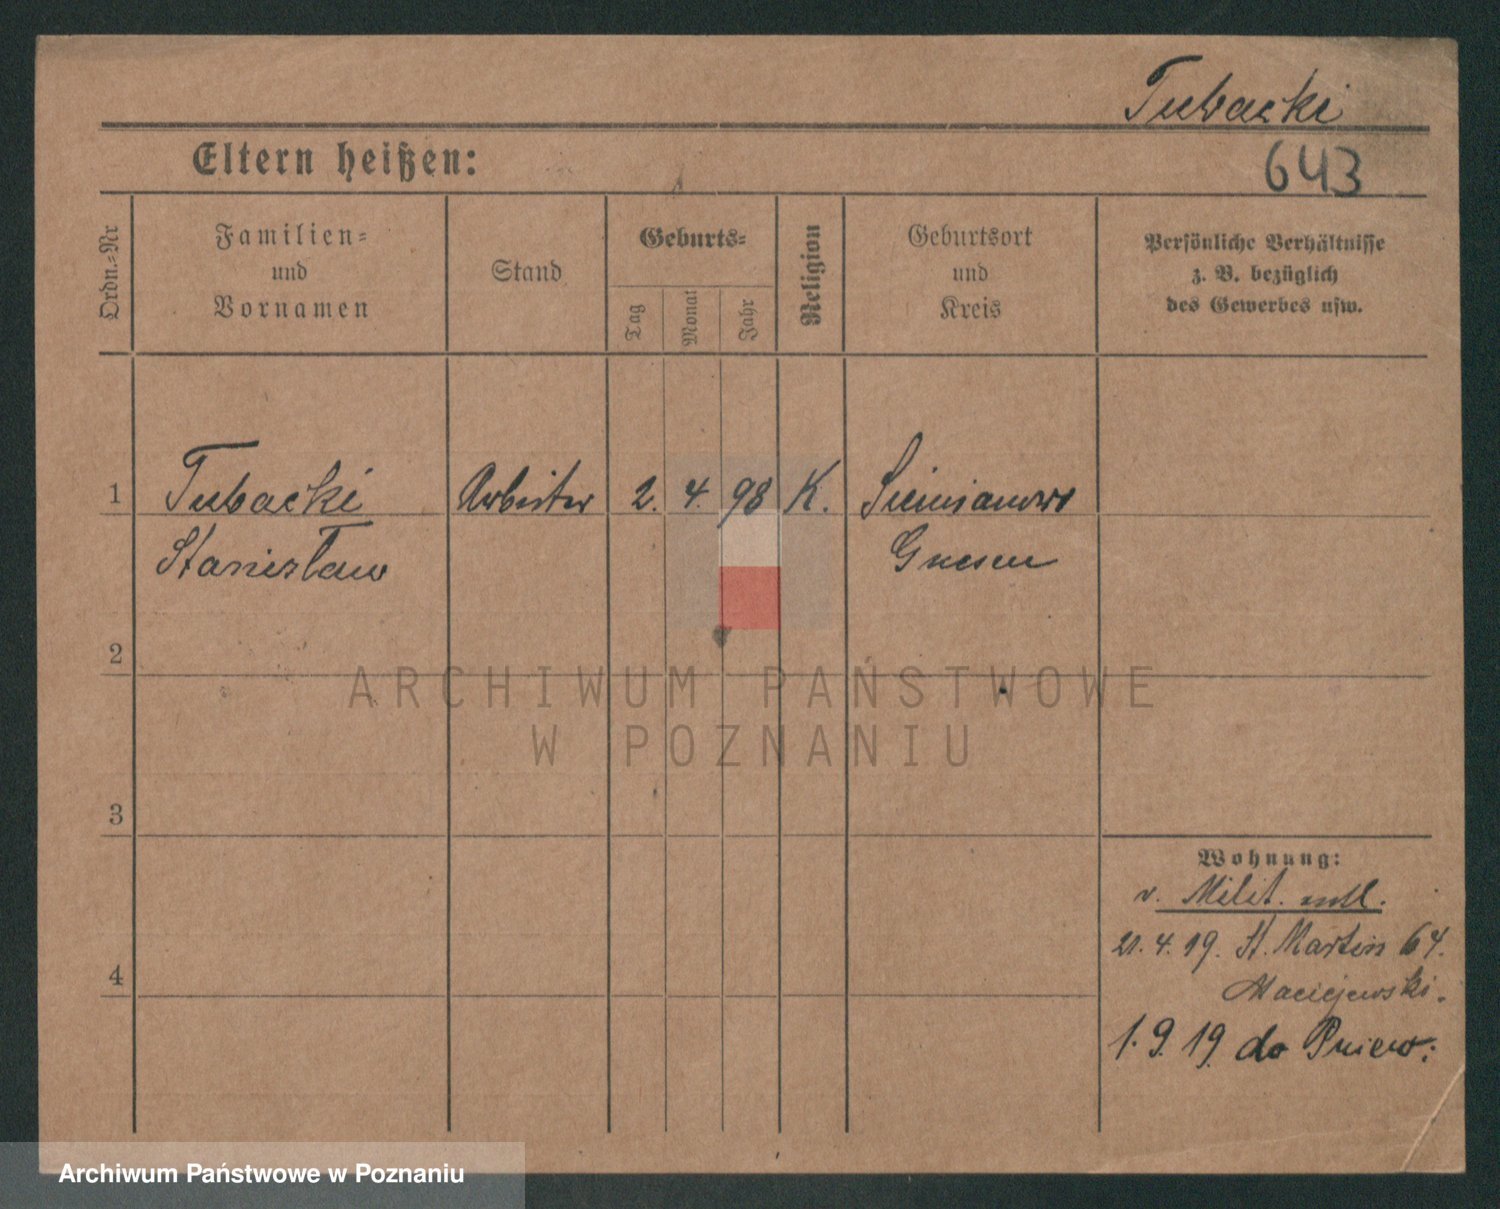 Tubacki
Eltern heißen:
643
Ordn.=Nr
Familien=
und
Vornamen
Stand
Geburts=
Tag
Monat
Jahr
Religion
Geburtsort
und
Kreis
Persönliche Verhältnisse
z. B. bezüglich
des Gewerbes usw.
1
Tubacki
Arbeiter
2. 4. 98
K.
Siemianowo
Stanisław
Gnesen
2
ARCHIWUM PAŃSTWOWE
W POZNANIU
3
Wohnung:
v. Milit. entl.
21. 4. 19. St. Martin 64.
4
Maciejewski.
1. 9. 19. do Pniew:
Archiwum Państwowe w Poznaniu